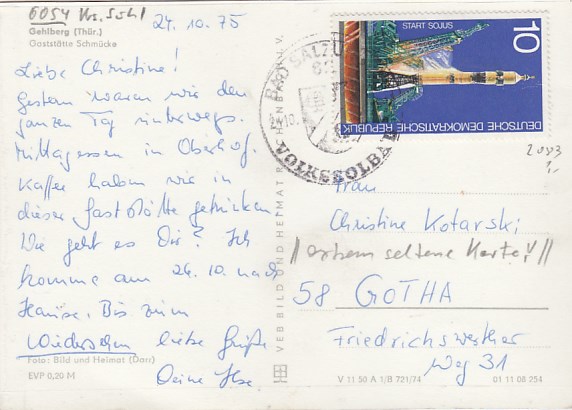 6054 Krs. Suhl
24.10.75
Gehlberg (Thür.)
Gaststätte Schmücke
Liebe Christine!
Gestern waren wir den
ganzen Tag unterwegs.
Mittagessen in Oberhof.
Kaffee haben wir in
dieser Gaststätte getrunken
Wie geht es Dir? Ich
komme am 26.10. nach
Hause. Bis zum
Wiedersehen liebe Grüße
Deine Ilse
Foto: Bild und Heimat (Darr)
EVP 0,20 M
VEB BILD UND HEIMAT REICHENBACH I. V.
BAD SALZU
VOLKSSOLBAD
START SOJUS
10
DEUTSCHE DEMOKRATISCHE REPUBLIK
2093
Frau
Christine Kotarski
seltene Karte!
58 GOTHA
Friedrichswerther
Weg 31
V 11 50 A 1/B 721/74
01 11 08 254